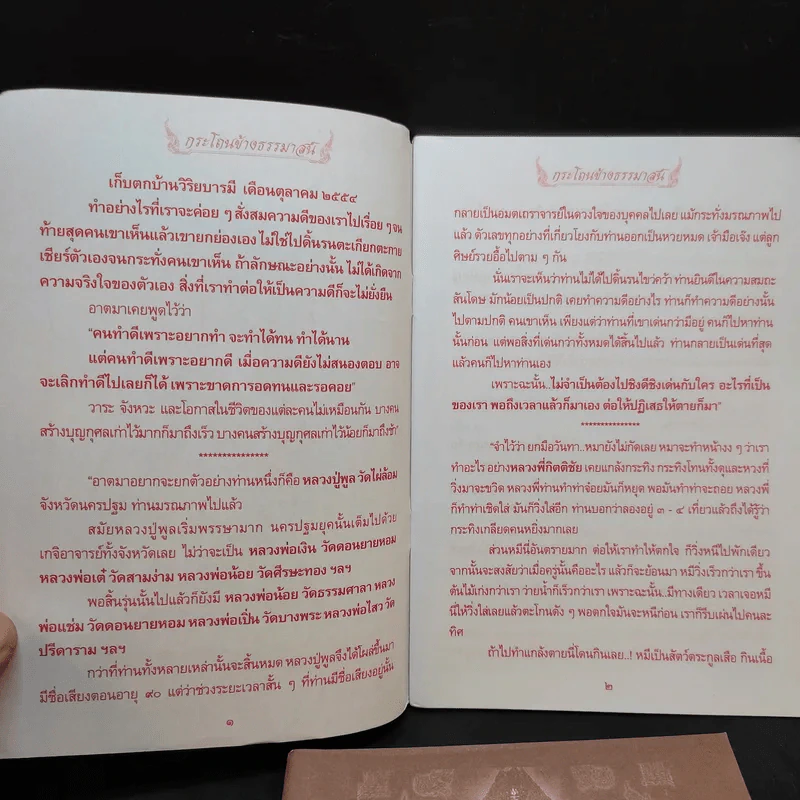 กระโถนข้างธรรมาสน์
เก็บตกบ้านวิริยบารมี เดือนตุลาคม ๒๕๕๔
ทำอย่างไรที่เราจะค่อย ๆ สั่งสมความดีของเราไปเรื่อย ๆ จน
ท้ายสุดคนเขาเห็นแล้วเขายกย่องเอง ไม่ใช่ไปดิ้นรนตะเกียกตะกาย
เชียร์ตัวเองจนกระทั่งคนเขาเห็น ถ้าลักษณะอย่างนั้น ไม่ได้เกิดจาก
ความจริงใจของตัวเอง สิ่งที่เราทำต่อให้เป็นความดีก็จะไม่ยั่งยืน
อาตมาเคยพูดไว้ว่า
"คนทำดีเพราะอยากทำ จะทำได้ทน ทำได้นาน
แต่คนทำดีเพราะอยากดี เมื่อความดียังไม่สนองตอบ อาจ
จะเลิกทำดีไปเลยก็ได้ เพราะขาดการอดทนและรอคอย"
วาระ จังหวะ และโอกาสในชีวิตของแต่ละคนไม่เหมือนกัน บางคน
สร้างบุญกุศลเก่าไว้มากก็มาถึงเร็ว บางคนสร้างบุญกุศลเก่าไว้น้อยก็มาถึงช้า"
***************
"อาตมาอยากจะยกตัวอย่างท่านหนึ่งก็คือ หลวงปู่พูล วัดไผ่ล้อม
จังหวัดนครปฐม ท่านมรณภาพไปแล้ว
สมัยหลวงปู่พูลเริ่มพรรษามาก นครปฐมยุคนั้นเต็มไปด้วย
เกจิอาจารย์ทั้งจังหวัดเลย ไม่ว่าจะเป็น หลวงพ่อเงิน วัดดอนยายหอม
หลวงพ่อเต๋ วัดสามง่าม หลวงพ่อน้อย วัดศีรษะทอง ฯลฯ
พอสิ้นรุ่นนั้นไปแล้วก็ยังมี หลวงพ่อน้อย วัดธรรมศาลา หลวง
พ่อแช่ม วัดดอนยายหอม หลวงพ่อเปิ่น วัดบางพระ หลวงพ่อไสว วัด
ปรีดาราม ฯลฯ
กว่าที่ท่านทั้งหลายเหล่านั้นจะสิ้นหมด หลวงปู่พูลจึงได้โผล่ขึ้นมา
มีชื่อเสียงตอนอายุ ๙๐ แต่ว่าช่วงระยะเวลาสั้น ๆ ที่ท่านมีชื่อเสียงอยู่นั้น
๑
กระโถนข้างธรรมาสน์
กลายเป็นอมตเถราจารย์ในดวงใจของบุคคลไปเลย แม้กระทั่งมรณภาพไป
แล้ว ตัวเลขทุกอย่างที่เกี่ยวโยงกับท่านออกเป็นหวยหมด เจ้ามือเจ๊ง แต่ลูก
ศิษย์รวยอื้อไปตาม ๆ กัน
นั่นเราจะเห็นว่าท่านไม่ได้ไปดิ้นรนไขว่คว้า ท่านยินดีในความสมถะ
สันโดษ มักน้อยเป็นปกติ เคยทำความดีอย่างไร ท่านก็ทำความดีอย่างนั้น
ไปตามปกติ คนเขาเห็น เพียงแต่ว่าท่านที่เขาเด่นกว่ามีอยู่ คนก็ไปหาท่าน
นั้นก่อน แต่พอสิ่งที่เด่นกว่าทั้งหมดได้สิ้นไปแล้ว ท่านกลายเป็นเด่นที่สุด
แล้วคนก็ไปหาท่านเอง
เพราะฉะนั้น..ไม่จำเป็นต้องไปชิงดีชิงเด่นกับใคร อะไรที่เป็น
ของเรา พอถึงเวลาแล้วก็มาเอง ต่อให้ปฏิเสธให้ตายก็มา"
***************
"จำไว้ว่า ยกมือวันทา..หมายังไม่กัดเลย หมาจะทำหน้างง ๆ ว่าเรา
ทำอะไร อย่างหลวงพี่กิตติชัย เคยแกล้งกระทิง กระทิงโทนทั้งดุและหวงที่
วิ่งมาจะขวิด หลวงพี่ท่านทำท่าจ๋อยมันก็หยุด พอมันทำท่าจะถอย หลวงพี่
ก็ทำท่าเชิดใส่ มันก็วิ่งใส่อีก ท่านบอกว่าลองอยู่ ๓ - ๔ เที่ยวแล้วถึงได้รู้ว่า
กระทิงเกลียดคนหยิ่งมากเลย
ส่วนหมีนี่อันตรายมาก ต่อให้เราทำให้ตกใจ ก็วิ่งหนีไปพักเดียว
จากนั้นจะสงสัยว่าเมื่อครู่นั้นคืออะไร แล้วก็จะย้อนมา หมีวิ่งเร็วกว่าเรา ขึ้น
ต้นไม้เก่งกว่าเรา ว่ายน้ำก็เร็วกว่าเรา เพราะฉะนั้น..มีทางเดียว เวลาเจอหมี
นี่ให้วิ่งใส่เลยแล้วตะโกนดัง ๆ พอตกใจมันจะหนีก่อน เราก็รีบเผ่นไปคนละ
ทิศ
ถ้าไปทำแกล้งตายนี่โดนกินเลย..! หมีเป็นสัตว์ตระกูลเสือ กินเนื้อ
๒